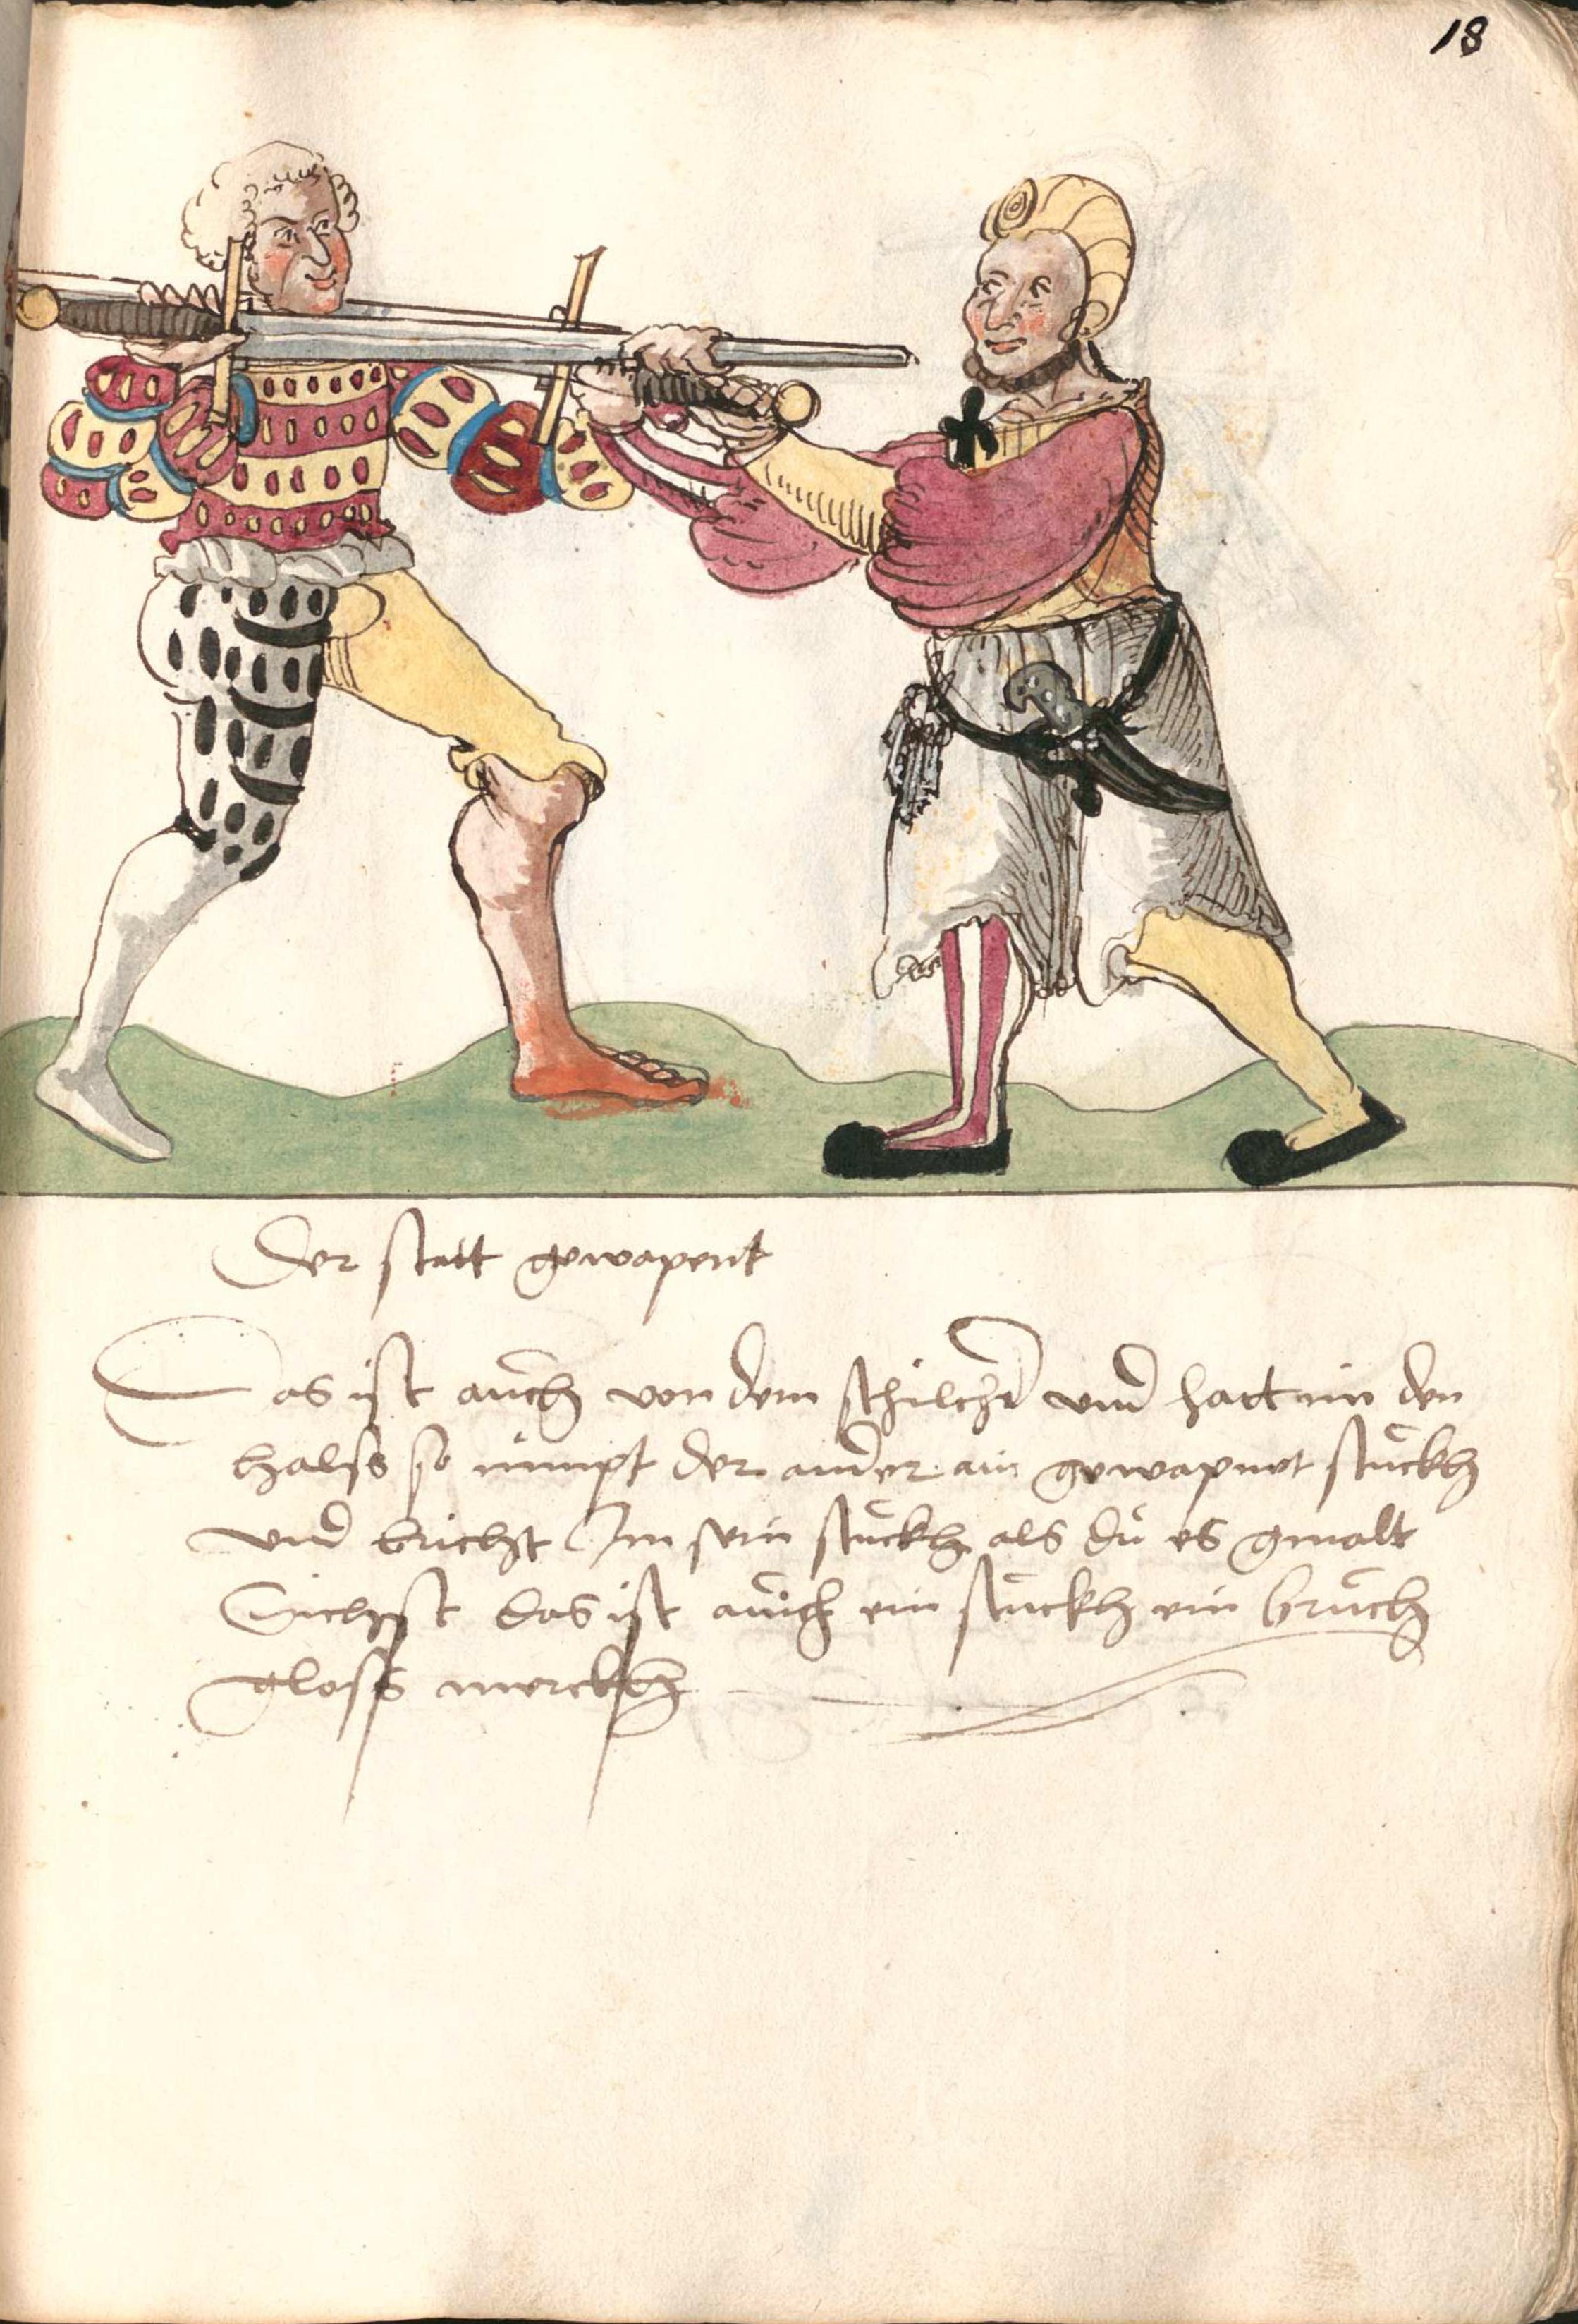 18
Der statt gewapent
Das ist auch von dem schilcher und hatt im den
halss so nimpt der ander ain gewapnet stückh
und bricht Im sein stuckh als du es gmalt
Sichsst das ist auch ein stuckh ein bruch
gloss merckh